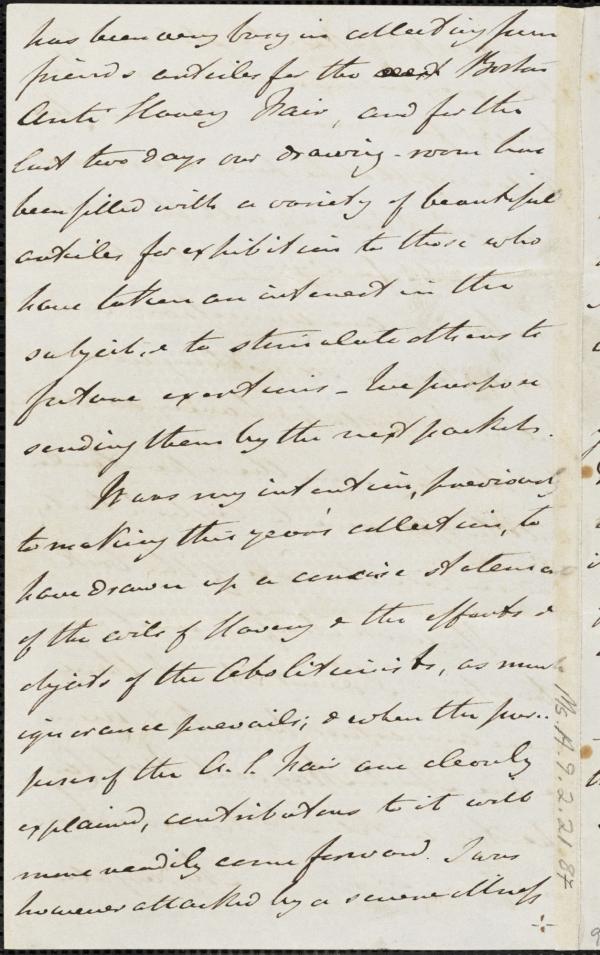 has been very busy in collecting from
friends articles for the next Boston
Anti Slavery Fair, and for the
last two days our drawing-room has
been filled with a variety of beautiful
articles for exhibition to those who
have taken an interest in the
subject, & to stimulate others to
future exertions - We purpose
sending them by the next packet.
It was my intention, previously
to making this year's collection, to
have drawn up a concise statement
of the evils of Slavery & the efforts &
objects of the Abolitionists, as much
ignorance prevails; & when the pur-
poses of the A. S. Fair are clearly
explained, contributors to it will
more readily come forward. I was
however attacked by a severe illness
Ms. A. 9. 2. 21. 84